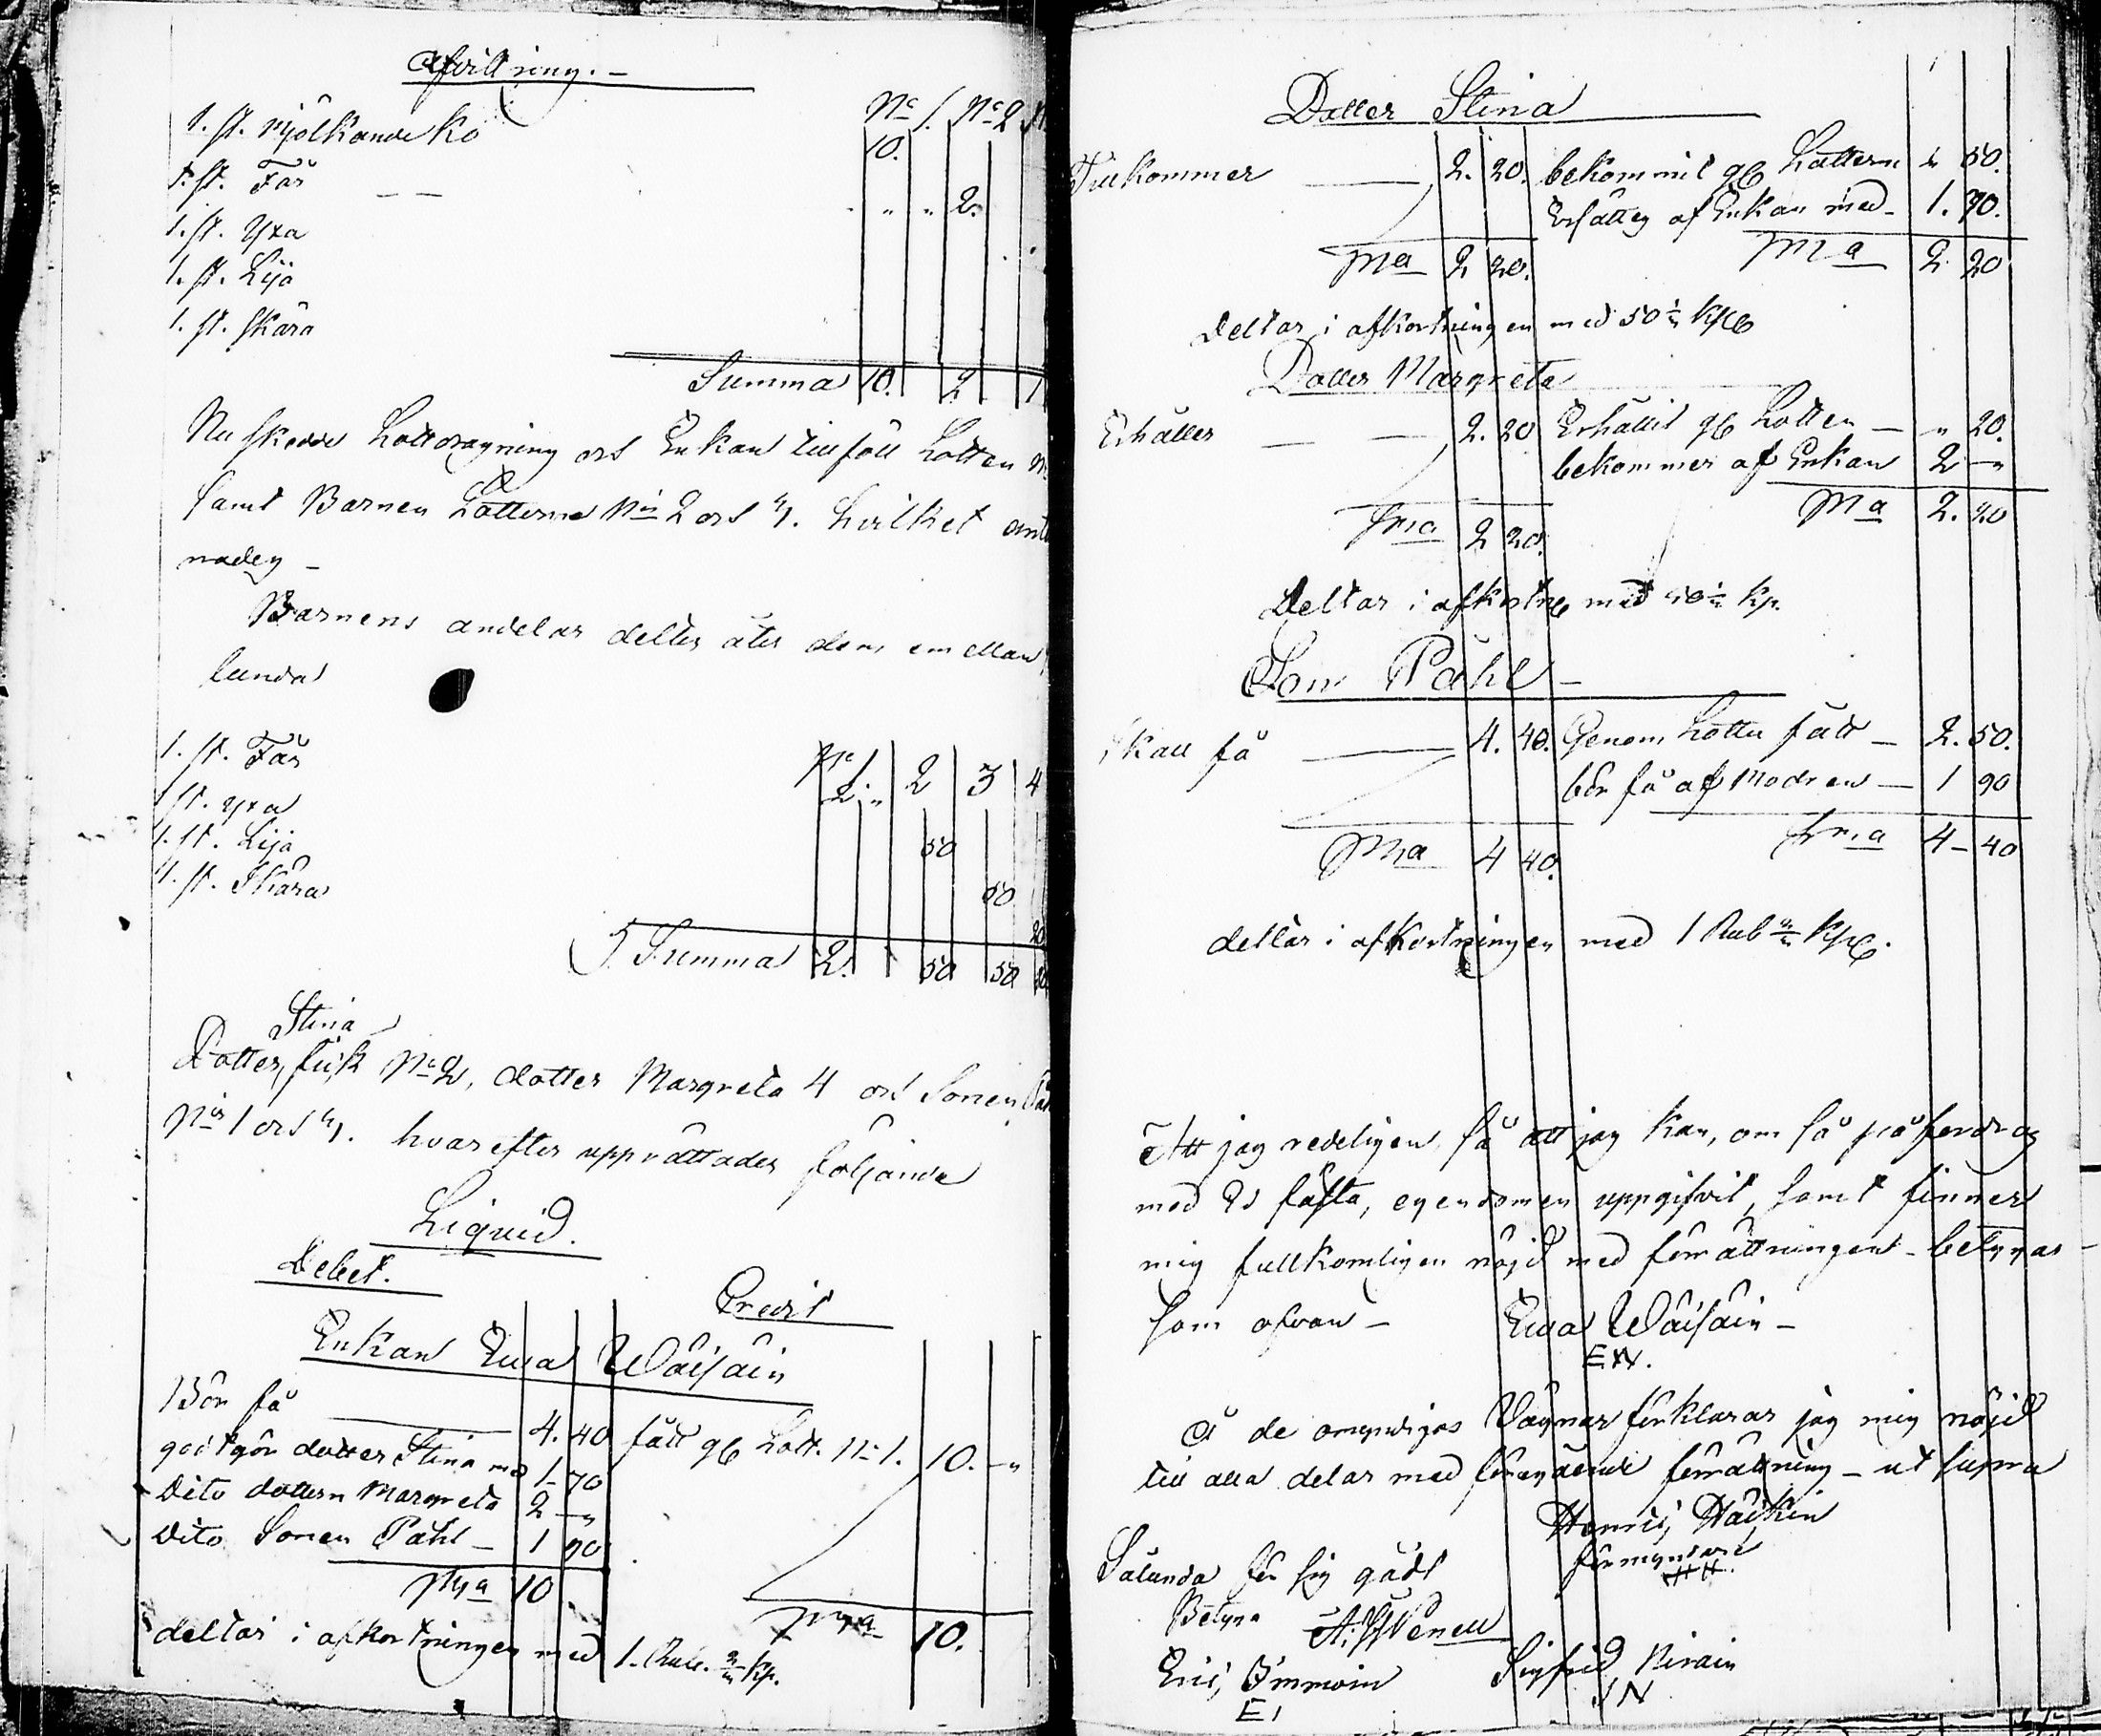 Afvittring.-
No 1. No 2
1. st. Mjölkande Ko 10.
1. st. Får - - " " 2.
1. st. Yxa
1. st. Lija
1. st. Skära
Summa 10. 2 1
Nu skedde Lottdragning och Enkan tillföll Lotten
samt Barnen Lotterne No 2 och 3. hvilket
nades -
Barnens andelar deltes åter dem emellan
lunda
No 1. 2 3 4
1. st. Får 2. "
1 st. yxa 50
1. st. Lija 50
1. st. Skära 20
Summa 2. 50 50 20
Stina
Dotter, fick No 2, dotter Margreta 4 och Sonen
No 1 och 3. hvarefter upprättades följande
Liquid.
Debet. Credit
Enkan Ewa Wäisäin
Bör få 4. 40 fått gb Lott. No 1. 10. - "
godtgör dotter Stina md 1- 70
Dito dottern Margreta 2 - "
Dito Sonen Påhl - 1 90
Sma 10 Sma 10.
deltar i afkortningen med 1. Rub. kp.
Dotter Stina
Tillkommer 2. 20. bekommit gb Lottern " 50.
Ersättes af Enkan med - 1. 70.
Sma 2 20. Sma 2 20
deltar i afkortningen med 50 kpr
Dotter Margreta
Erhåller - - 2. 20 Erhållit gb Lotten - " 20.
bekommer af Enkan 2 - "
Sma 2 20. Sma 2. 20
Deltar i afkortng med 50 kp.
Son Påhl -
skall få 4. 40. Genom Lotter fått - 2. 50.
bör få af Modren - 1 90
Sma 4 40. Sma 4 - 40
deltar i afkortningen med 1 Rub kp.
Att jag redeligen så att jag kan, om så påfordras
med Ed fästa, egendomen uppgifvit, samt finner
mig fullkomligen nöjd med förrättningen - betygas -
som ofvan - Ewa Wäisäin -
EW.
å de omyndigas Vägnar förklarar jag mig nöjd
till alla delar med föregående förrättning - ut supra
Henric Häikin
förmyndare
HH.
Sålunda för sig gådt
Betyga
Eric Immoin Sigfrid Niräin
EI SN